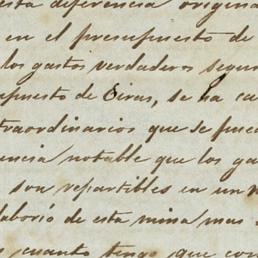 esta diferencia origina
en el presupuesto de
los gastos verdaderos segun
upuesto de Oiras, se ha cu
traordinarios que se fuco
encia notable que los ga
son repartibles en un
laborió de esta mina mas
cuanto tengo que con